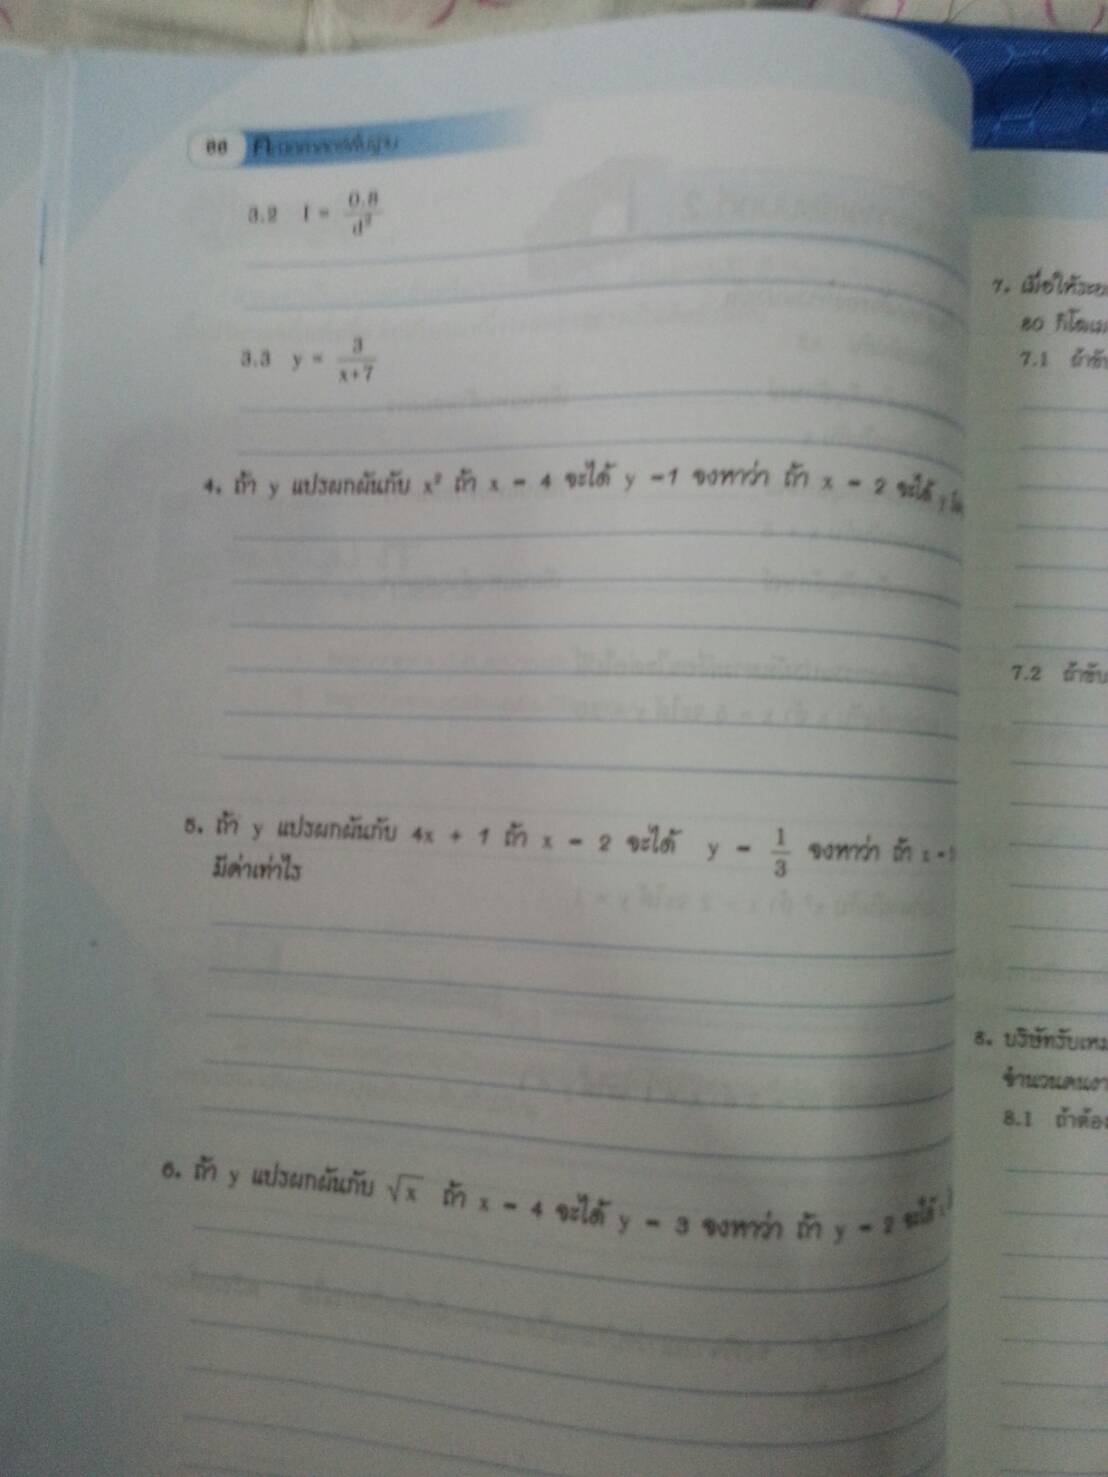 3.2 I = 0.8/d²
3.3 y = 3/(x+7)
4. ถ้า y แปรผกผันกับ x² ถ้า x = 4 จะได้ y = 1 จงหาว่า ถ้า x = 2 จะได้ y
5. ถ้า y แปรผกผันกับ 4x + 1 ถ้า x = 2 จะได้ y = 1/3 จงหาว่า ถ้า x =
มีค่าเท่าไร
6. ถ้า y แปรผกผันกับ √x ถ้า x = 4 จะได้ y = 3 จงหาว่า ถ้า y = 2 จะได้
7. เมื่อให้ระย
80 กิโลเม
7.1 ถ้าขับ
7.2 ถ้าขับ
8. บริษัทรับเหม
จำนวนคนงา
8.1 ถ้าต้อง